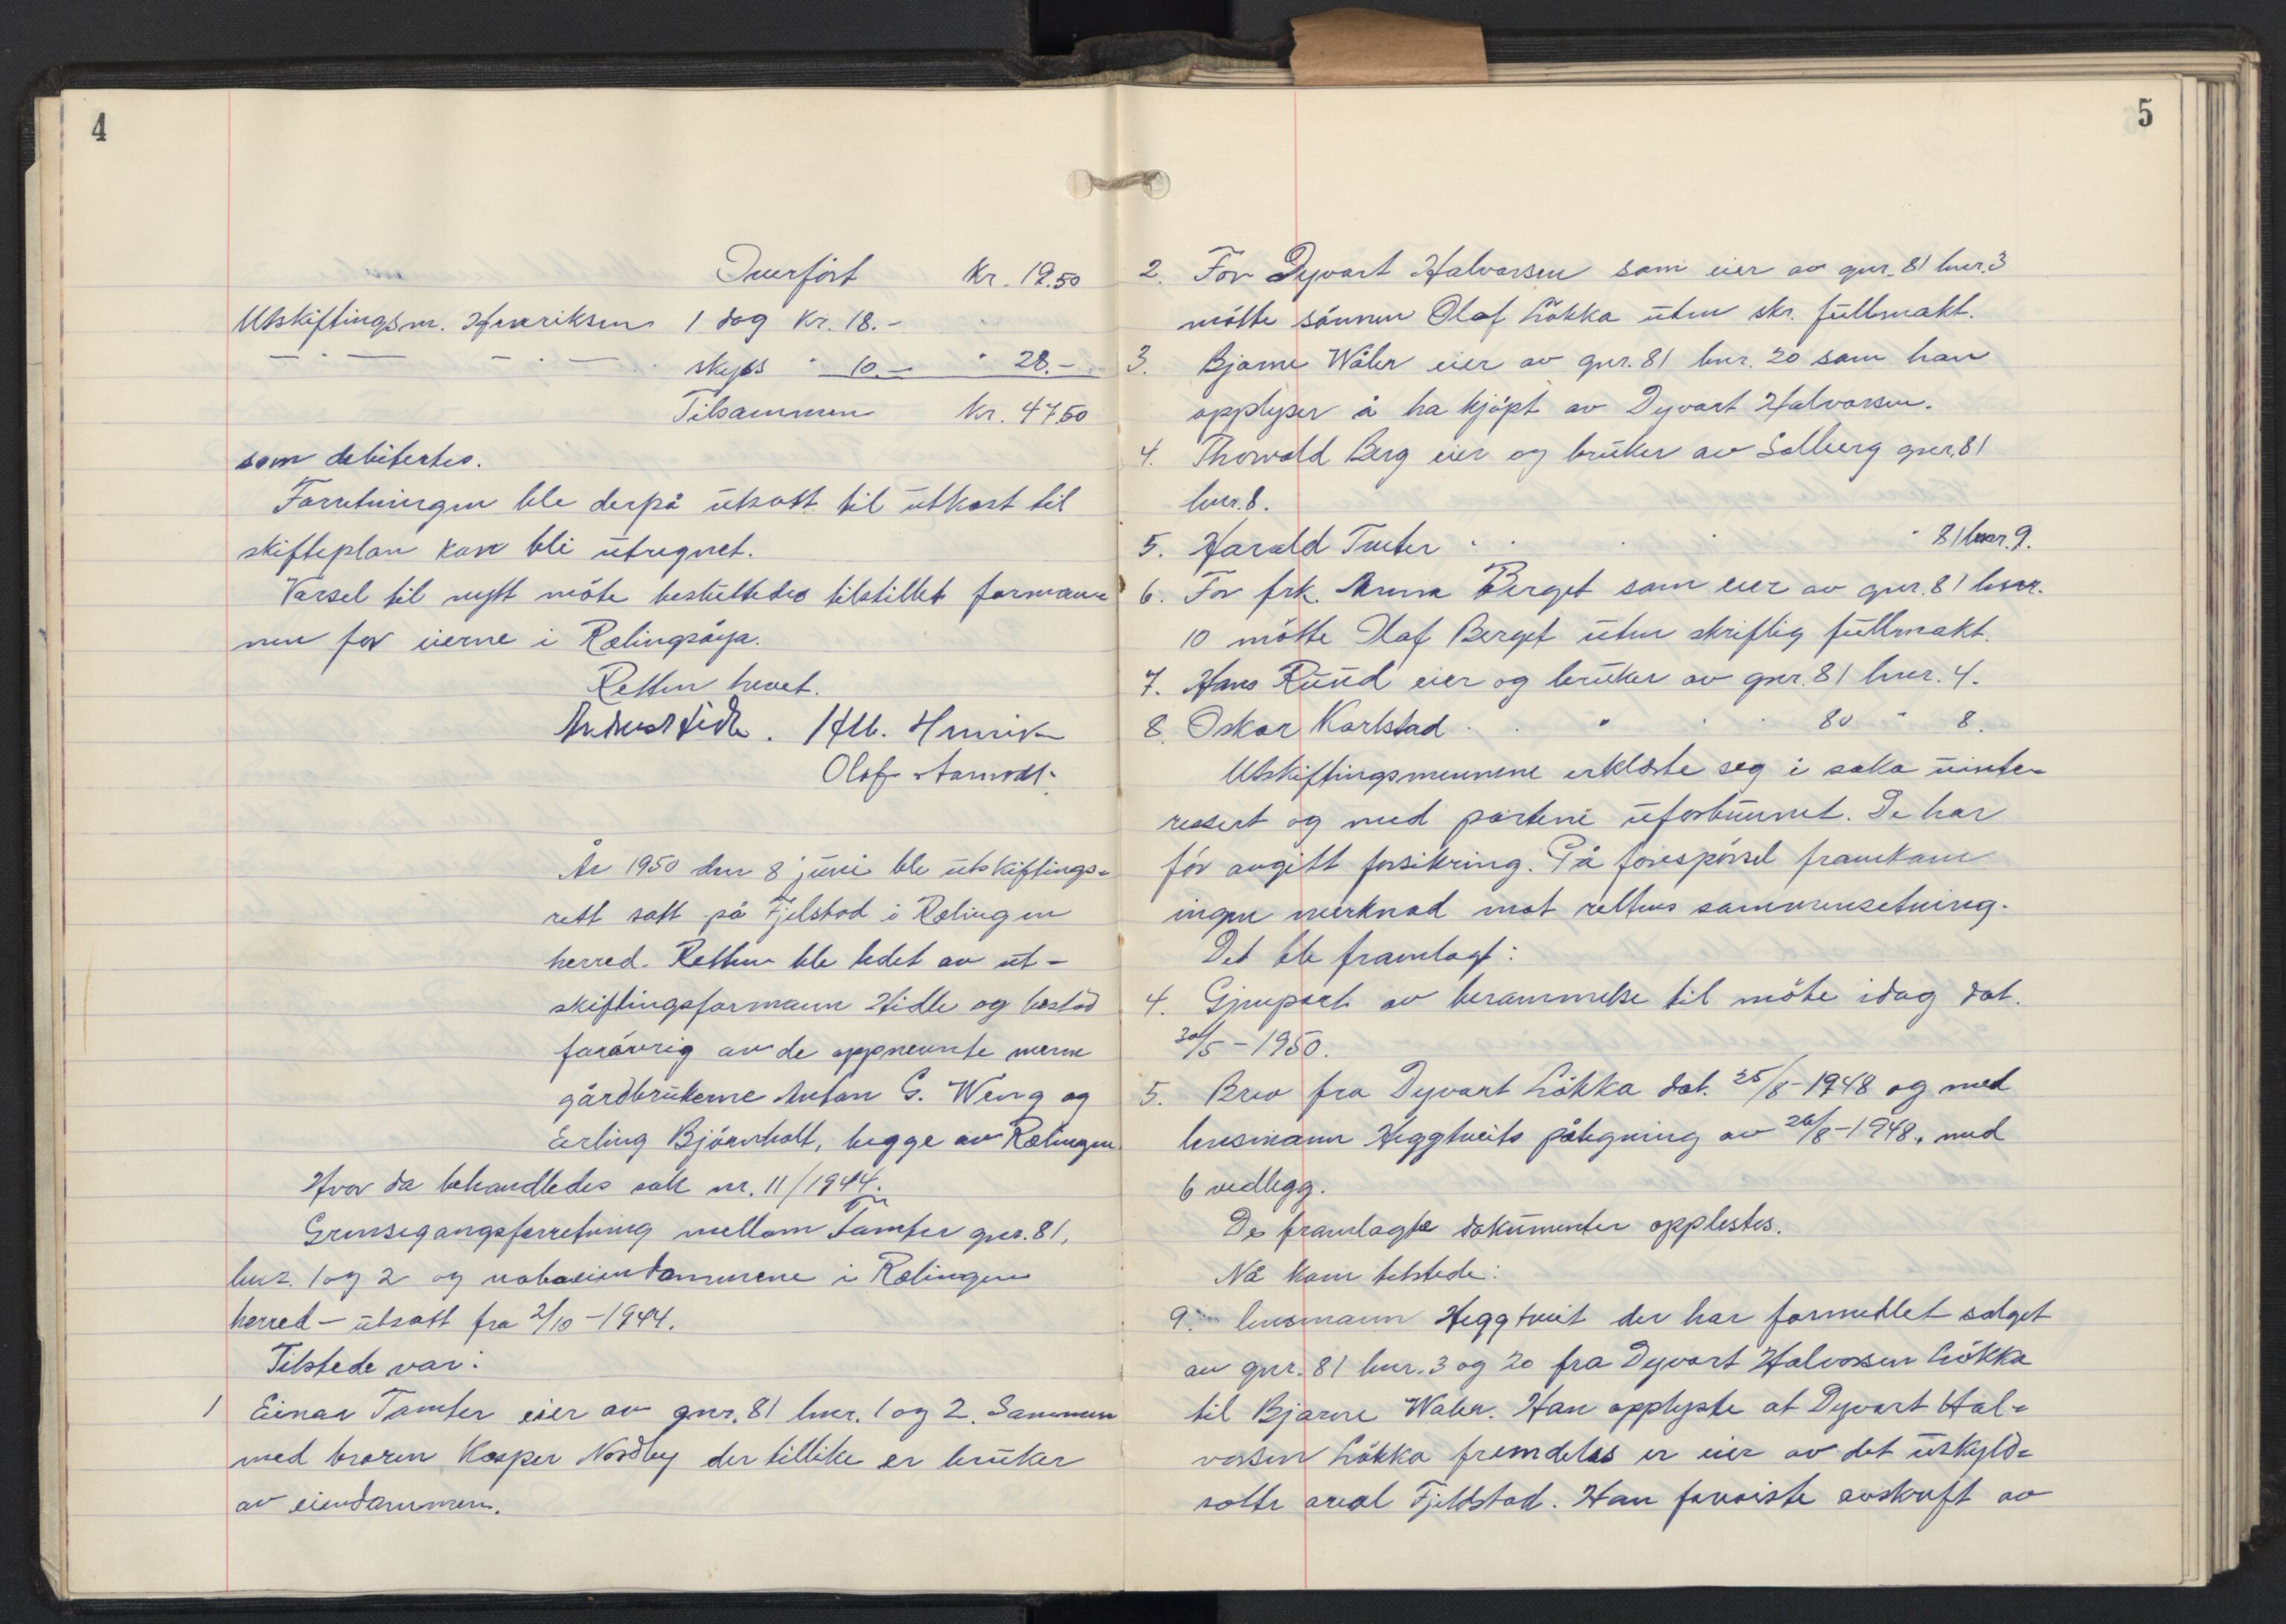 4
Overført Kr. 19.50
Utskiftingsm. Henriksen 1 dag Kr. 18.-
— " — — " — skyss " 10.- " 28.-
Tilsammen Kr. 47.50
som debitertes.
Forretningen ble derpå utsatt til utkast til
skifteplan kan bli utregnet.
Varsel til nytt möte besluttedes tilstillet forman=
nen for eierne i Rælingsöya.
Retten hevet.
Hidle. Alb. Henrik
Olaf Aamodt
År 1950 den 8 juni ble utskiftings=
rett satt på Fjelstad i Rælingen
herred. Retten ble ledet av ut-
skiftingsformann Hidle og bestod
forövrig av de oppnevnte menn
gårdbrukerne Anton G. Weng og
Erling Björnholt, begge av Rælingen
Hvor da behandledes sak nr. 11/1944.
Grensegangsforretning mellom Tamter gnr. 81,
bnr. 1 og 2 og naboeiendommene i Rælingen
herred - utsatt fra 2/10-1944.
Tilstede var:
1 Einar Tamter eier av gnr. 81 bnr. 1 og 2. Sammen
med broren Kasper Nordby der tillike er bruker
av eiendommen.
5
2. For Dyvart Halvorsen som eier av gnr. 81 bnr. 3
mötte sönnen Olaf Lökka uten skr. fullmakt.
3. Bjarne Waler eier av gnr. 81 bnr. 20 som han
opplyser å ha kjöpt av Dyvart Halvorsen.
4. Thorvald Berg eier og bruker av Solberg gnr. 81
bnr. 8.
5. Harald Tueter " " " " " 81 bnr. 9.
6. For frk. Anna Berget som eier av gnr. 81 bnr.
10 mötte Olaf Berget uten skriftlig fullmakt.
7. Hans Rund eier og bruker av gnr. 81 bnr. 4.
8. Oskar Karlstad " " " " " 80 " 8.
Utskiftingsmennene erklærte seg i saka uinte=
ressert og med partene uforbunnet. De har
för avgitt forsikring. På forespörsel framkom
ingen merknad mot rettens sammensetning.
Det ble framlagt:
4. Gjenpart av berammelse til möte idag dat.
30/5-1950.
5. Brev fra Dyvart Lökka dat. 25/8-1948 og med
lensmann Heggtveits påtegning av 26/8-1948, med
6 vedlegg.
De framlagte dokumenter opplestes.
Nå kom tilstede:
9. lensmann Heggtveit der har formidlet salget
av gnr. 81 bnr. 3 og 20 fra Dyvart Halvorsen Lökka
til Bjarne Waler. Han opplyste at Dyvart Hal=
vorsen Lökka fremdeles er eier av det uskyld=
satte areal Fjeldstad. Han foreviste avskrift av